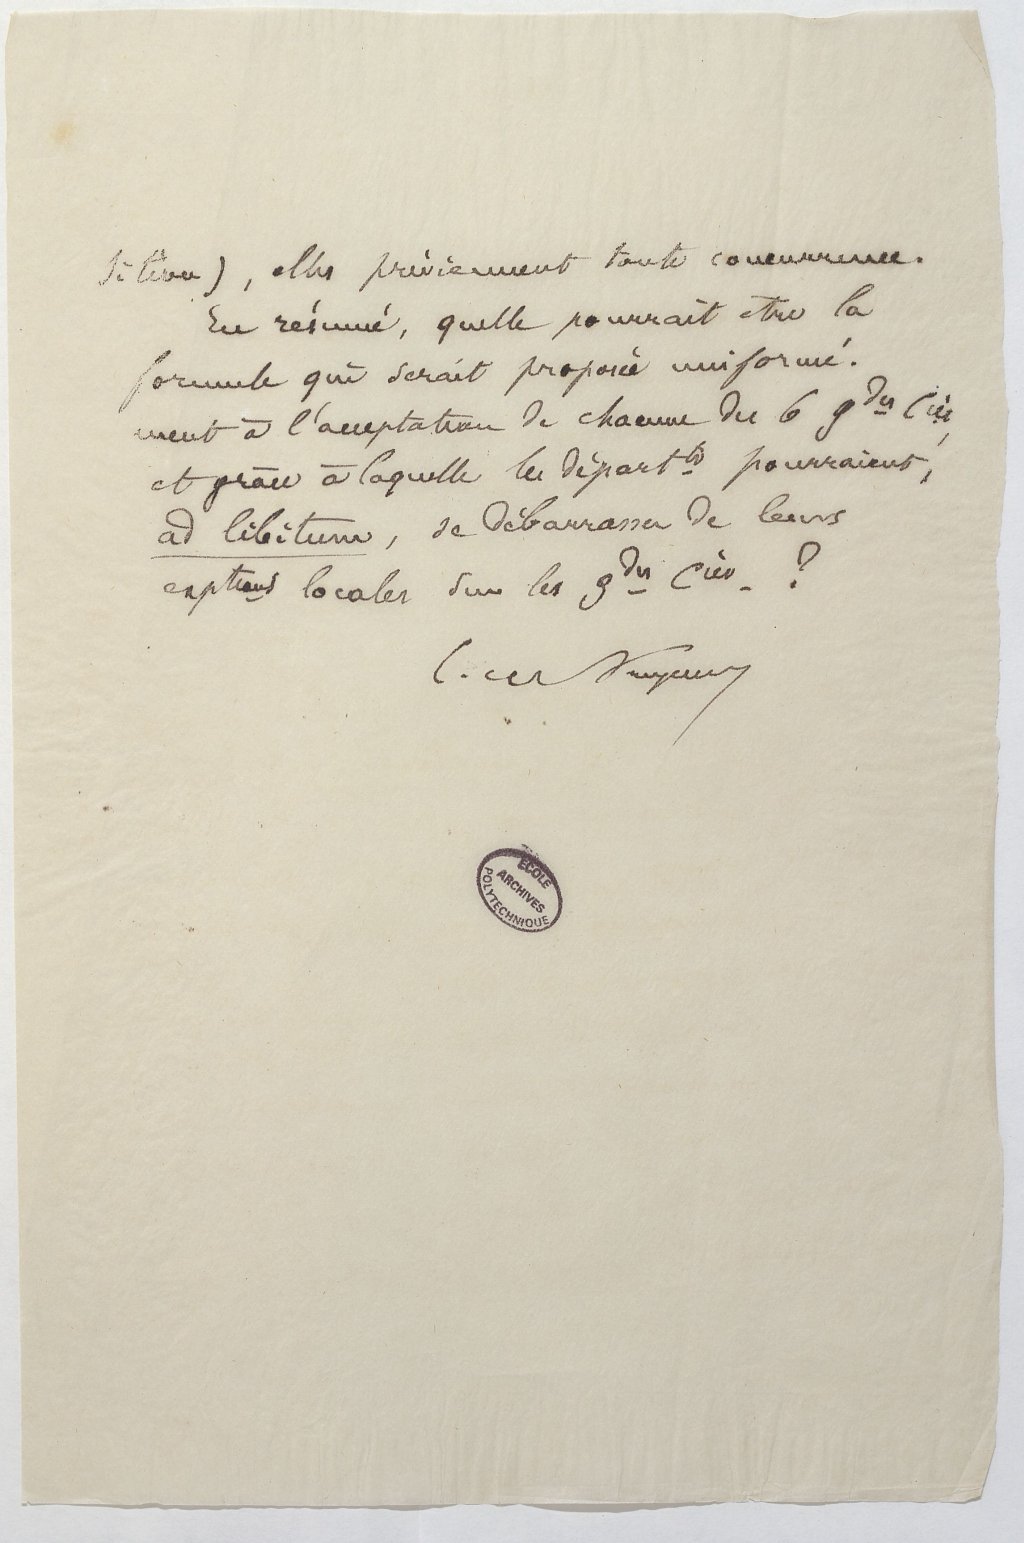 sition), elles préviennent toute concurrence.
En résumé, quelle pourrait être la
formule qui serait proposée uniformé-
ment à l'acceptation de chacune des 6 gdes Cies,
et grâce à laquelle les départts pourraient,
ad libitum, se débarrasser de leurs
exptions locales sur les gdes Cies ?
C. de
ÉCOLE
ARCHIVES
POLYTECHNIQUE